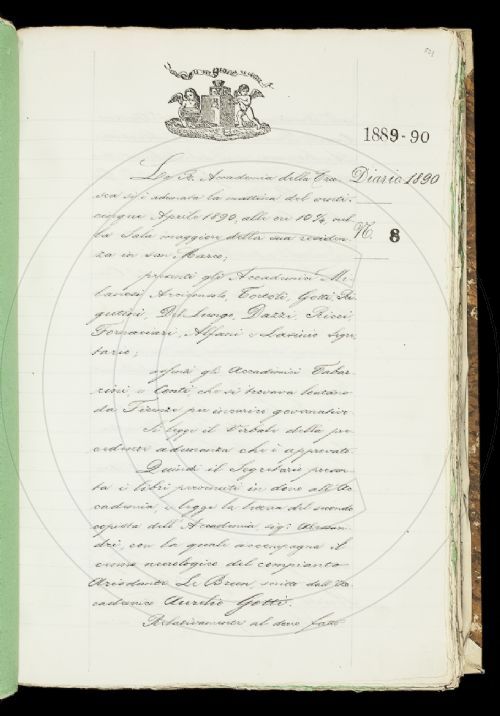 521
1889-90
Diario 1890
N. 8
La R. Accademia della Cru-
sca si è adunata la mattina del venti-
cinque Aprile 1890, alle ore 10 ½, nel-
la Sala maggiore della sua residen-
za in san Marco;
presenti gli Accademici Mi-
lanesi Arciconsolo, Tortoli, Gotti, Ri-
gutini, Del Lungo, Dazzi, Ricci
Fornaciari, Alfani e Lasinio Segre-
tario;
assenti gli Accademici Tabar-
rini, e Conti, che si trovava lontano
da Firenze per incarico governativo.
Si legge il Verbale della pre-
cedente adunanza che è approvato.
Quindi il Segretario presen-
ta i libri pervenuti in dono all'Ac-
cademia, e legge la lettera del secondo
copista dell'Accademia, sig.
con la quale accompagna il
cenno necrologico del compianto
Ariodante Le Brun, scritto dall'Ac-
cademico Aurelio Gotti.
Relativamente al dono fatto